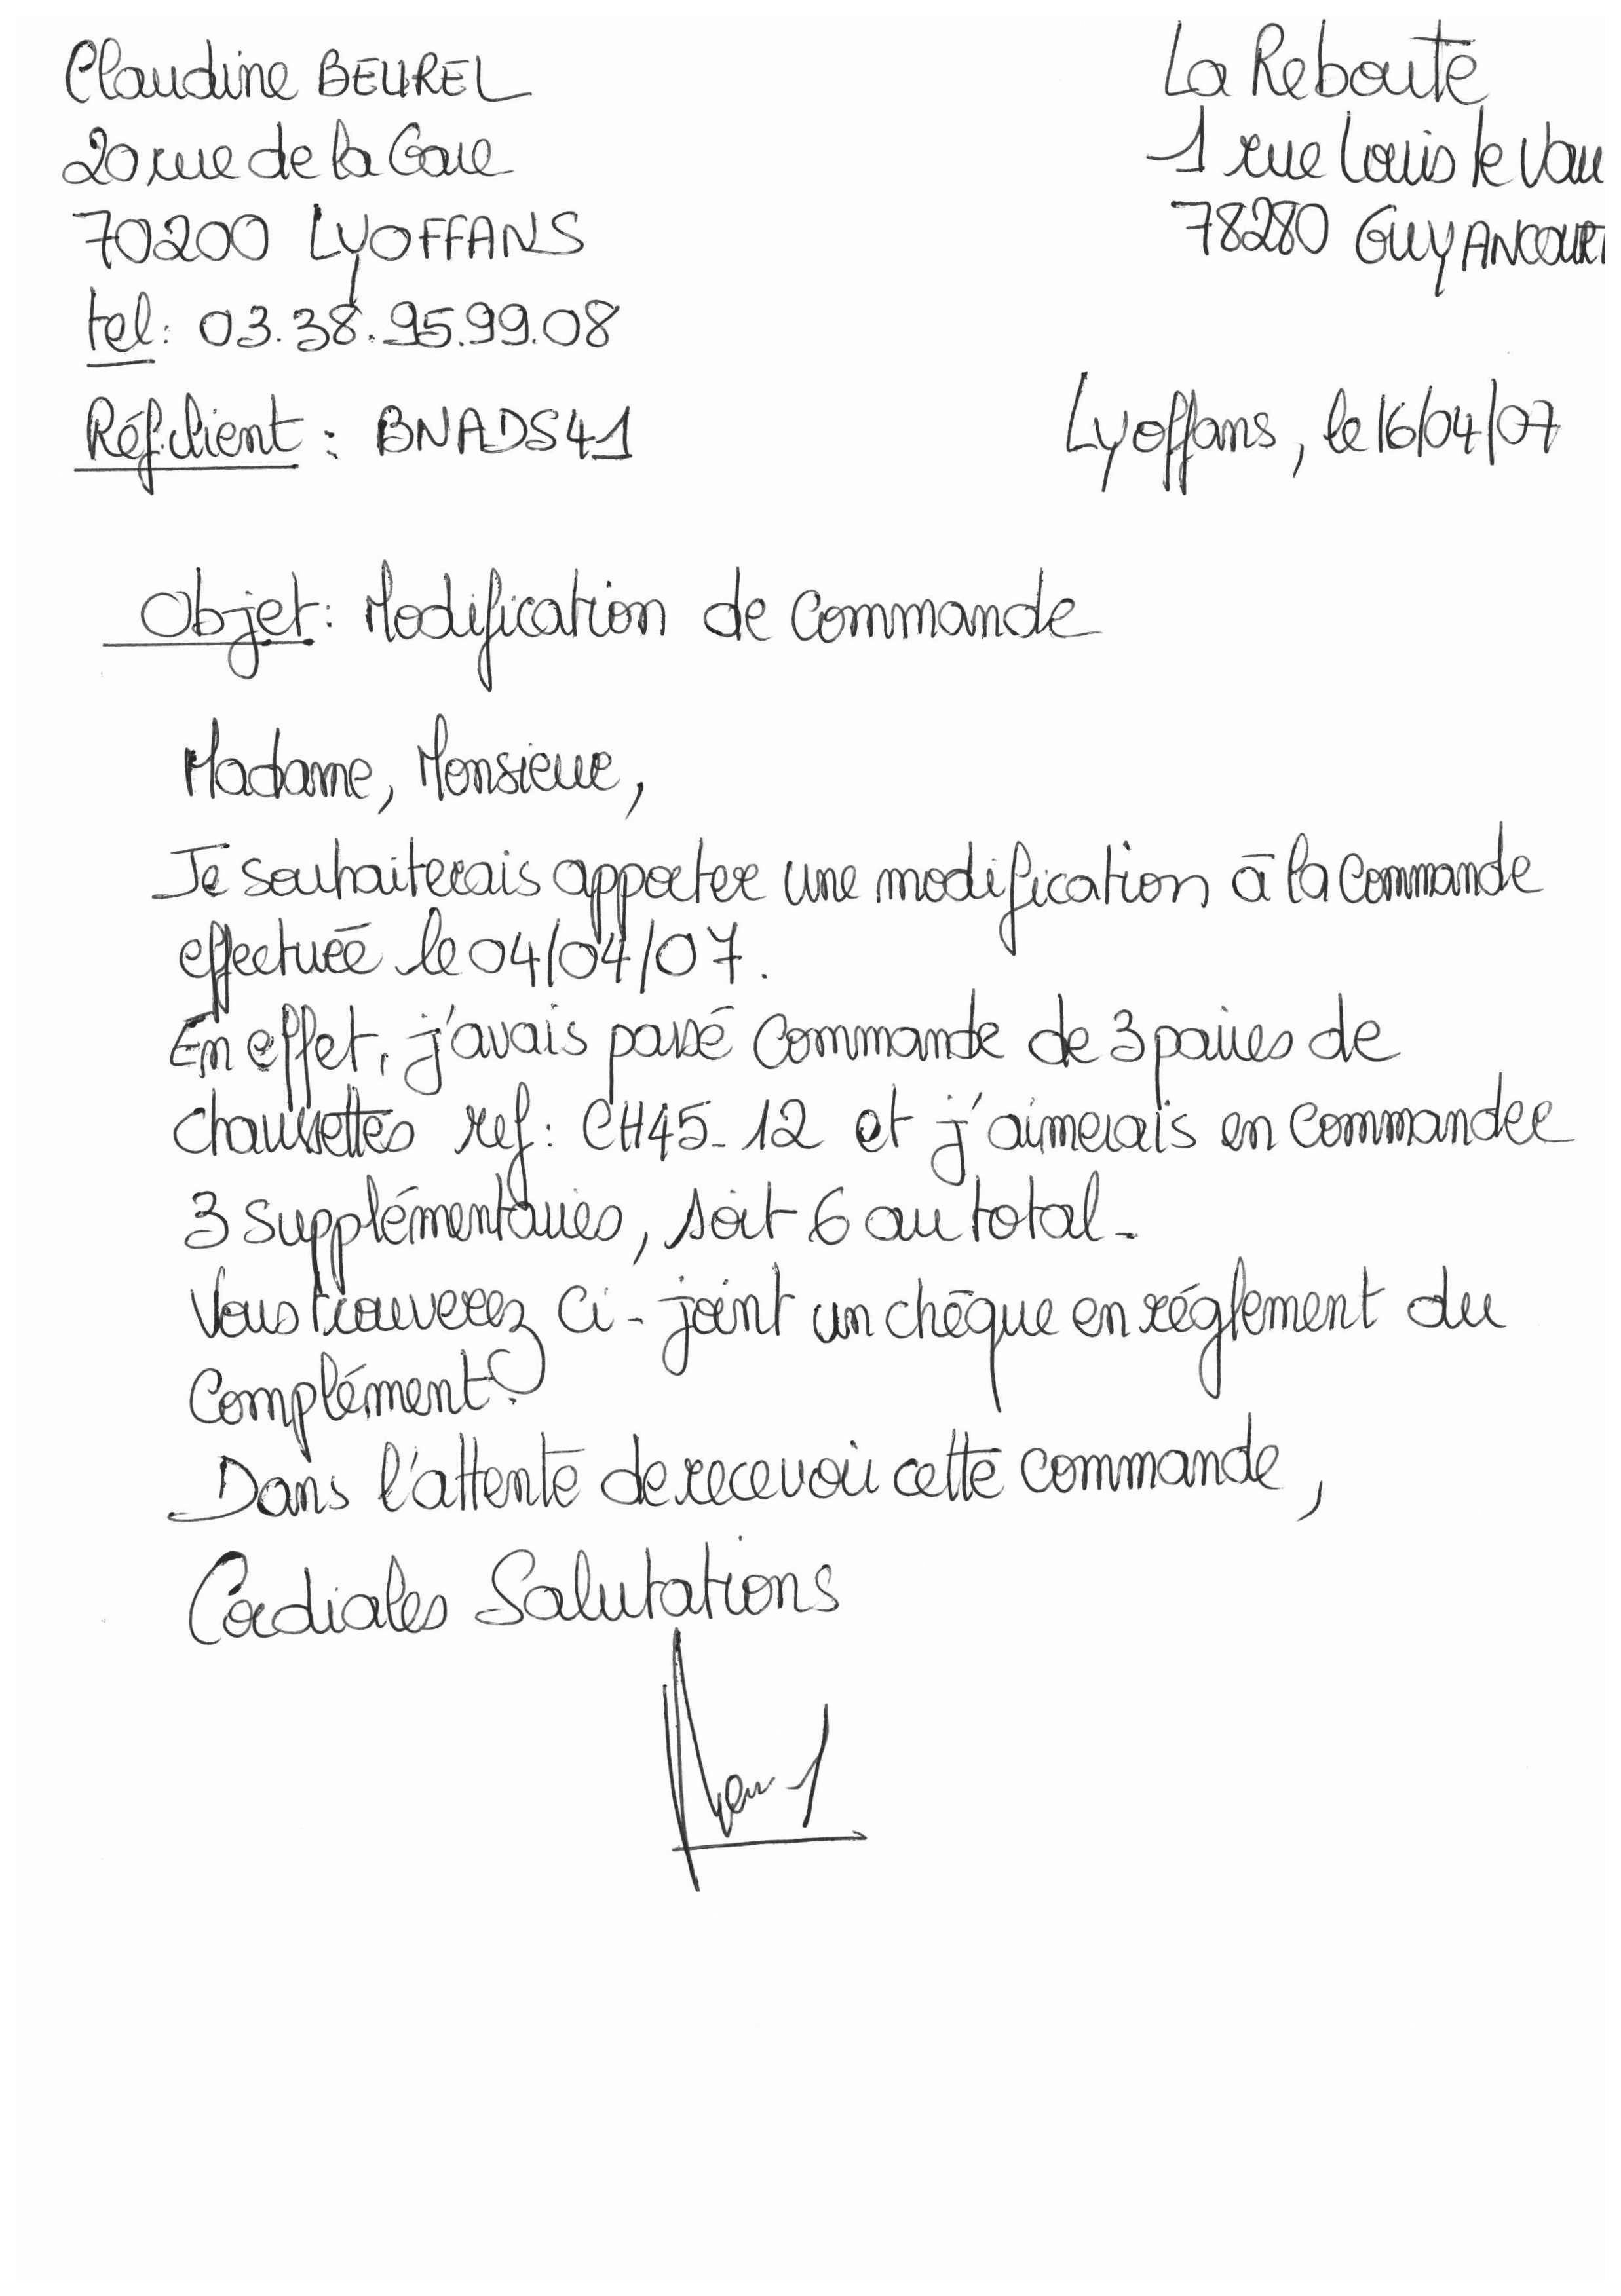 Claudine BEUREL
20 rue de la Gare
70200 LYOFFANS
tel: 03.38.95.99.08
Réf.client : BNADS41
La Reboute
1 rue Louis le Vau
78280 GUYANCOURT
Lyoffans, le 16/04/07
Objet: Modification de commande
Madame, Monsieur,
Je souhaiterais apporter une modification à la commande
effectuée le 04/04/07.
En effet, j'avais passé commande de 3 paires de
chaussettes ref: CH45-12 et j'aimerais en commander
3 supplémentaires, soit 6 au total.
Vous trouverez ci-joint un chèque en réglement du
complément.
Dans l'attente de recevoir cette commande,
Cordiales Salutations